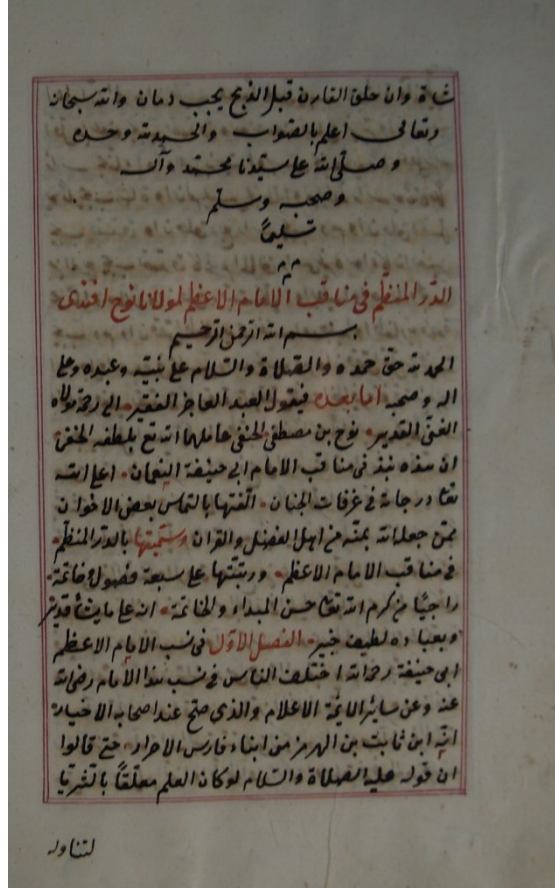 شاة وان حلق القارن قبل الذبح يجب دمان والله سبحانه
وتعالى اعلم بالصواب والحمد لله وحده
وصلى الله على سيدنا محمد وآله
وصحبه وسلم
تسليمًا
الدر المنظم فى مناقب الامام الاعظم لمولانا نوح افندى
بسم الله الرحمن الرحيم
الحمد لله حق حمده والصلاة والسلام على نبيه وعبده وعلى
اله وصحبه اما بعد فيقول العبد العاجز الفقير الى رحمة مولاه
الغنى القدير نوح بن مصطفى الحنفى عاملهما الله تع بلطفه الخفى
ان هذه نبذ فى مناقب الامام ابى حنيفة النعمان اعلى الله
تعا درجاته فى غرفات الجنان الّفتها بالتماس بعض الاخوان
ممن جعله الله بمنّه من اهل الفضل والقران وسمّيتها بالدرّ المنظّم
فى مناقب الامام الاعظم ورتبتها على سبعة فصول وخاتمة
راجيًا من كرم الله تعا حسن المبداء والخاتمة انه على ما يشأ قدير
وبعباده لطيف خبير الفصل الاوّل فى نسب الامام الاعظم
ابى حنيفة رحمه الله اختلف الناس فى نسب هذا الامام رضى الله
عنه وعن سائر الائمة الاعلام والذى صح عند اصحابه الاخيار
انّه ابن ثابت بن الهرمز من ابناء فارس الاحرار حتى قالوا
ان قوله عليه الصلاة والسلام لو كان العلم معلّقاً بالثريّا
لتناوله